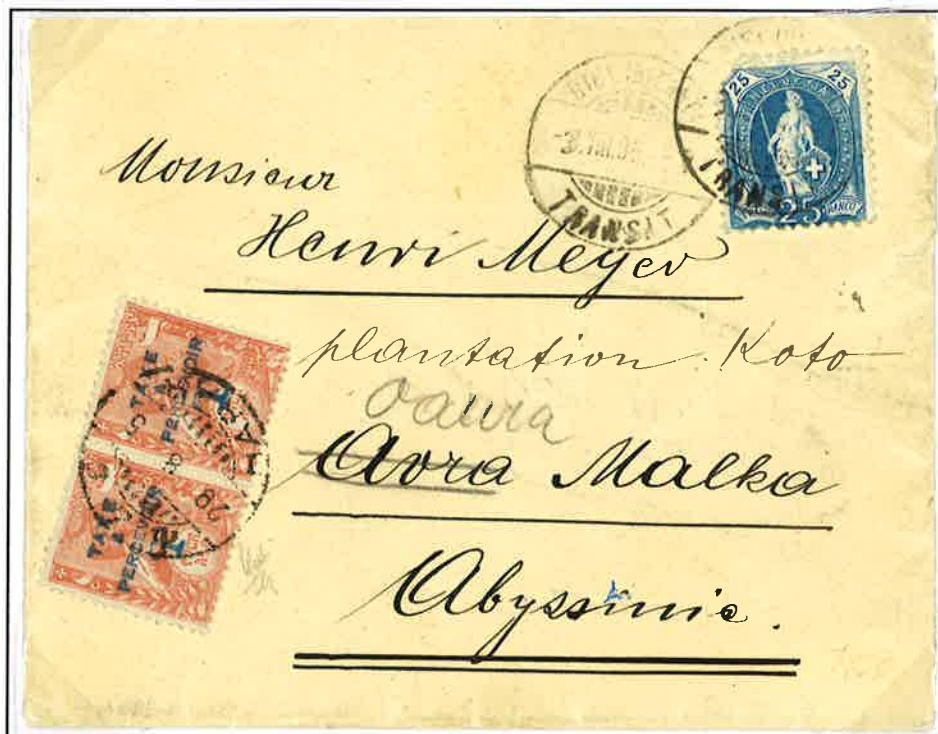 25 25
TRANSIT
25
TRANS
Monsieur
Henri Meyer
plantation. Koto
oaura
Avra Malka
Abyssinie.
TAXE
A
PERCEVOIR
T
TAXE
A
PERCEVOIR
T